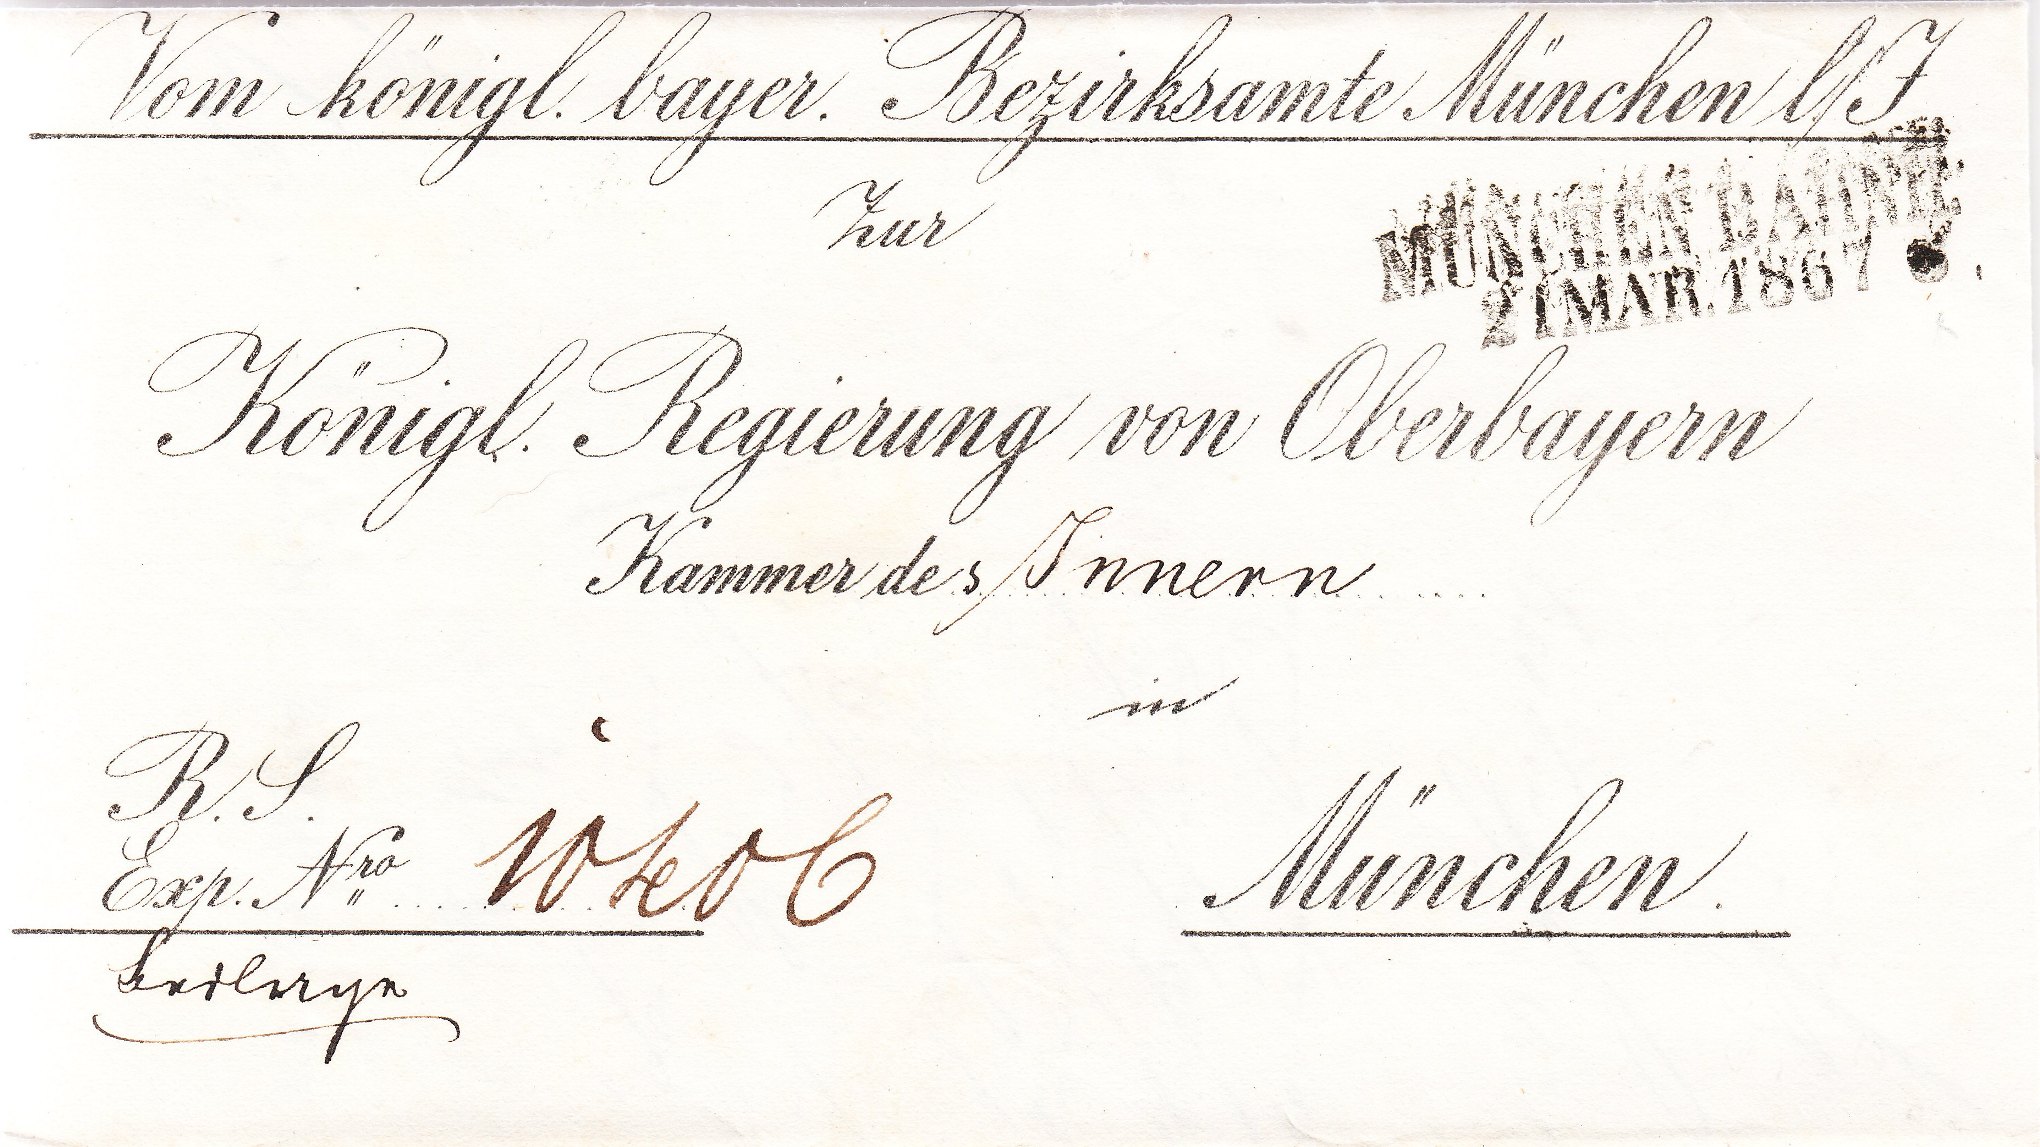 Vom königl. bayer. Bezirksamte München l/I
MÜNCHEN BAHNH.
21 MAR. 1867
Zur
Königl. Regierung von Oberbayern
Kammer des Innern
in
R. S.
Exp. Nro 10406
München.
Beilage